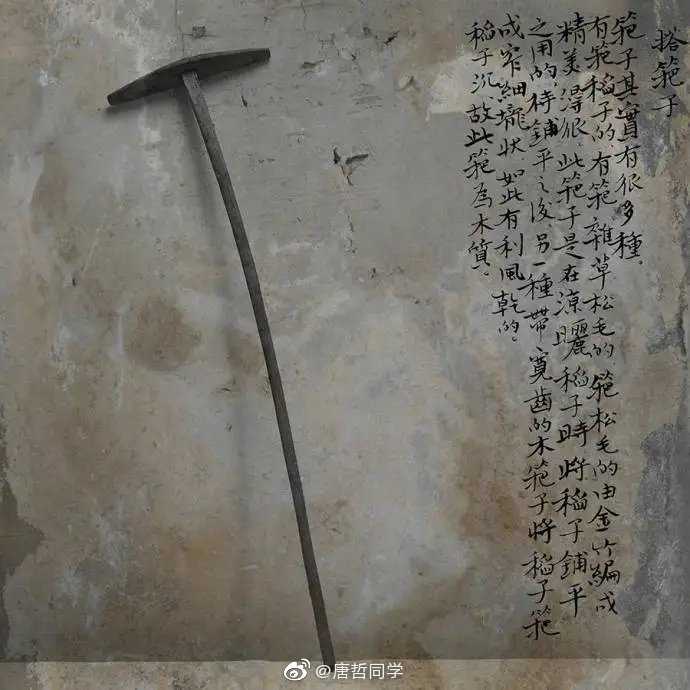 搭筢子
筢子其實有很多種，
有筢稻子的，有筢雜草松毛的，筢松毛的由金竹編成
精美得很，此筢子是在涼曬稻子時將稻子鋪平
之用的，待鋪平之後，另一種帶寬齒的木筢子將稻子筢
成窄細壠狀，如此有利風乾的。
稻子沉故此筢為木質。
@唐哲同学